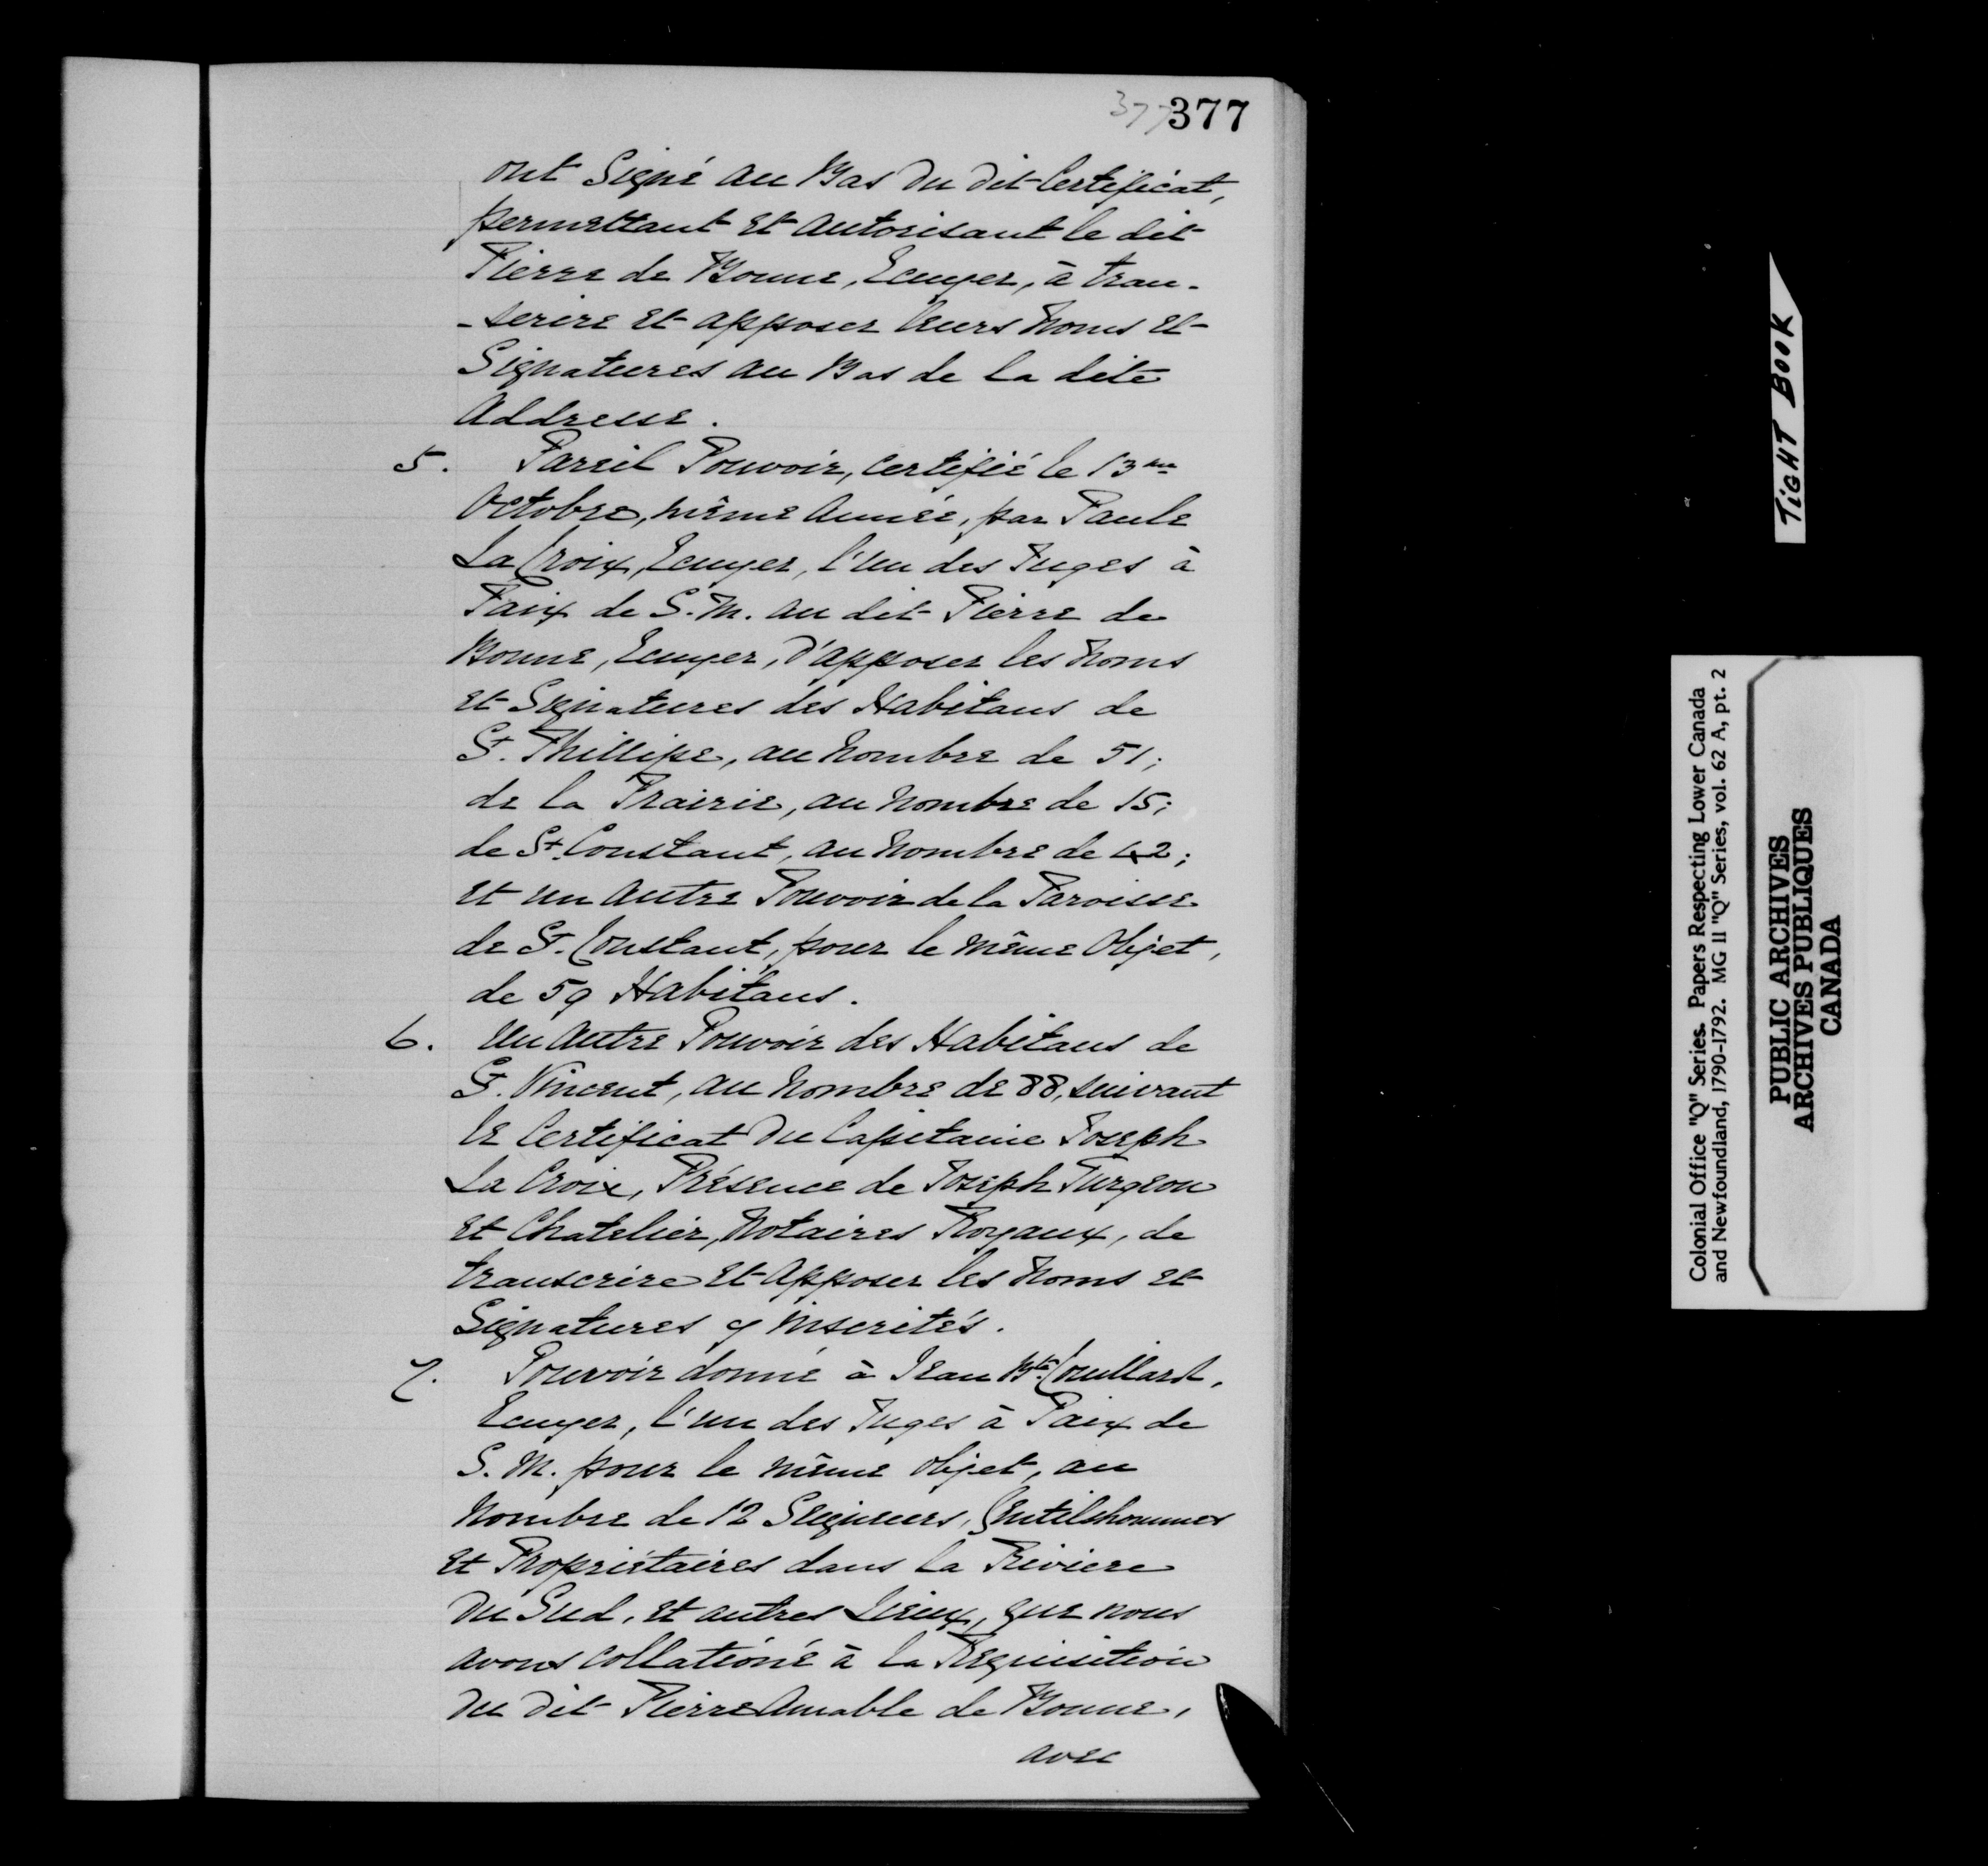 377 377
ont Signé au Bas du dit Certificat,
permettant et autorisant le dit
Pierre de Bonne, Ecuyer, à tran-
-scrire et apposer leurs Noms et
Signatures au Bas de la dite
Addresse.
5. Pareil Pouvoir, certifié le 13me
Octobre, même Année, par Paule
La Croix, Ecuyer, l'un des Juges à
Paix de S. M. au dit Pierre de
Bonne, Ecuyer, d'apposer les Noms
et Signatures des Habitans de
St. Phillipe, au Nombre de 51;
de la Prairie, au Nombre de 15;
de St. Constant, au Nombre de 42;
et un autre Pouvoir de la Paroisse
de St. Constant, pour le même Objet,
de 59 Habitans.
6. Un autre Pouvoir des Habitans de
St. Vincent, au Nombre de 88, suivant
le Certificat du Capitaine Joseph
La Croix, Présence de Joseph Turgeon
et Chatelier, Notaires Royaux, de
transcrire et apposer les Noms et
Signatures y inscrités.
7. Pouvoir donné à Jean Bte. Couillard,
Ecuyer, l'un des Juges à Paix de
S. M. pour le même objet, au
Nombre de 12 Seigneurs, Gentilshommes
et Propriétaires dans la Riviere
du Sud, et autres Lieux, que nous
avons collationé à la Requisition
du dit Pierre Amable de Bonne,
avec
TIGHT BOOK
Colonial Office "Q" Series. Papers Respecting Lower Canada
and Newfoundland, 1790-1792. MG 11 "Q" Series, vol. 62 A, pt. 2
PUBLIC ARCHIVES
ARCHIVES PUBLIQUES
CANADA